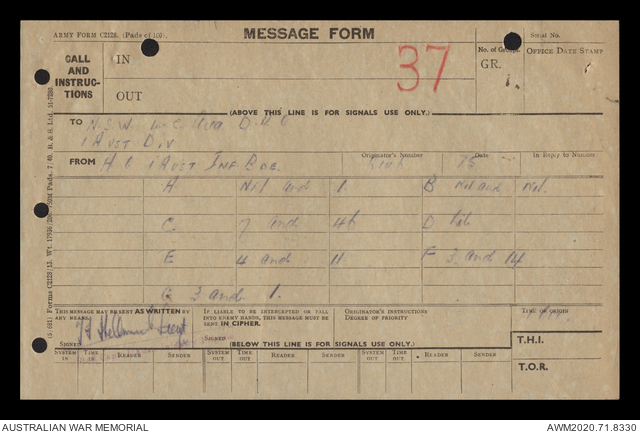 ARMY FORM C2128. (Pads of 100).
MESSAGE FORM
Serial No.
CALL AND INSTRUC-TIONS
IN
OUT
37
No. of Groups
GR.
OFFICE DATE STAMP
(ABOVE THIS LINE IS FOR SIGNALS USE ONLY.)
TO
1 AUST DIV
FROM 1 AUST INF BDE.
Originator's Number
Date
In Reply to Number
A Nil and 1. B Nil and Nil.
C 7 and 46 D
E 4 and 11 F 3 and 14
G 3 and 1.
THIS MESSAGE MAY BE SENT AS WRITTEN BY ANY MEANS.
IF LIABLE TO BE INTERCEPTED OR FALL INTO ENEMY HANDS, THIS MESSAGE MUST BE SENT IN CIPHER.
ORIGINATOR'S INSTRUCTIONS DEGREE OF PRIORITY
TIME OF ORIGIN
SIGNED
SIGNED
(BELOW THIS LINE IS FOR SIGNALS USE ONLY.)
T.H.I.
T.O.R.
SYSTEM IN TIME IN READER SENDER SYSTEM OUT TIME OUT READER SENDER SYSTEM OUT TIME OUT READER SENDER
AUSTRALIAN WAR MEMORIAL
AWM2020.71.8330